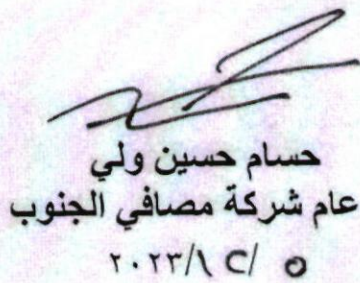 حسام حسين ولي
عام شركة مصافي الجنوب
٢٠٢٣/١٢/ ٥